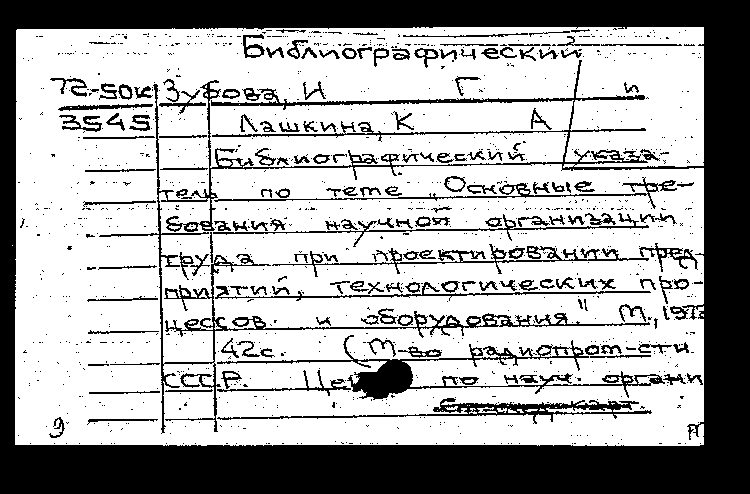 Библиографический
72-50к Зубова, И Г. и
3545 Лашкина, К А
Библиографический указа-
тель по теме „Основные тре-
бования научной организации
труда при проектировании пред-
приятий, технологических про-
цессов и оборудования." М., 197
42с. (М-во радиопром-сти
СССР. Цен по науч. органи
9